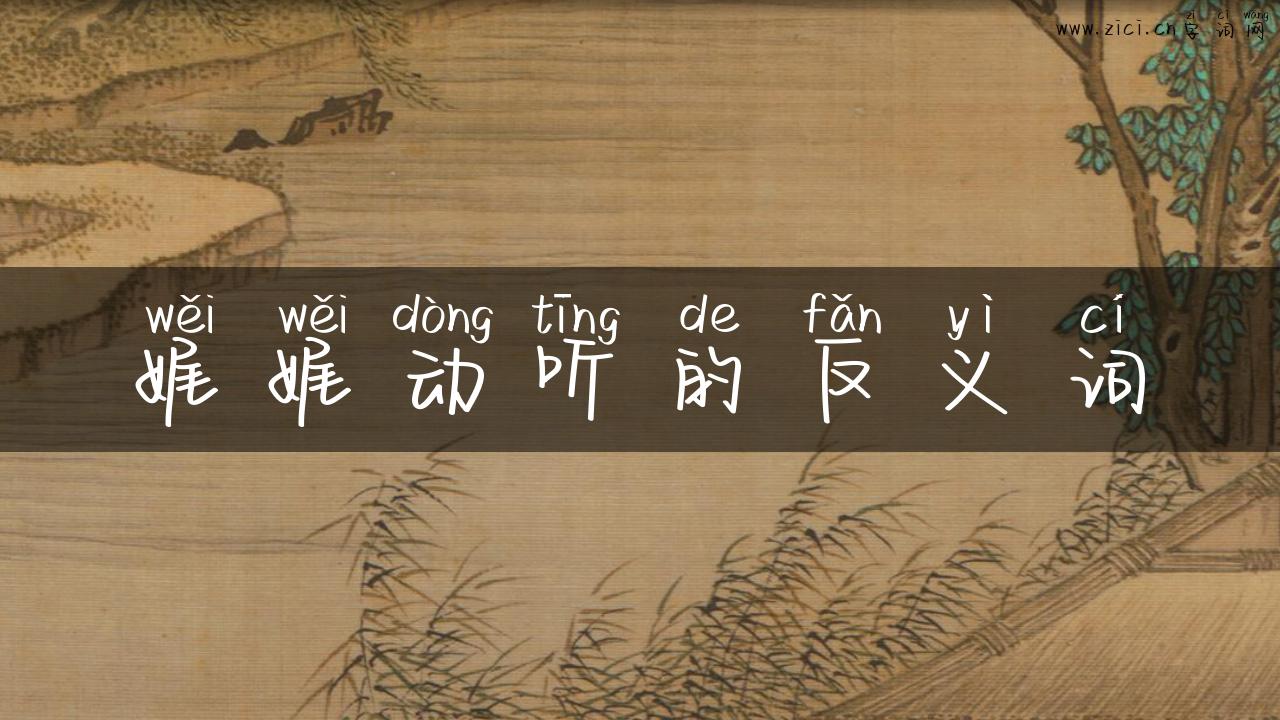 zì cí wǎng
www.zici.cn字词网
wěi wěi dòng tīng de fǎn yì cí
娓娓动听的反义词